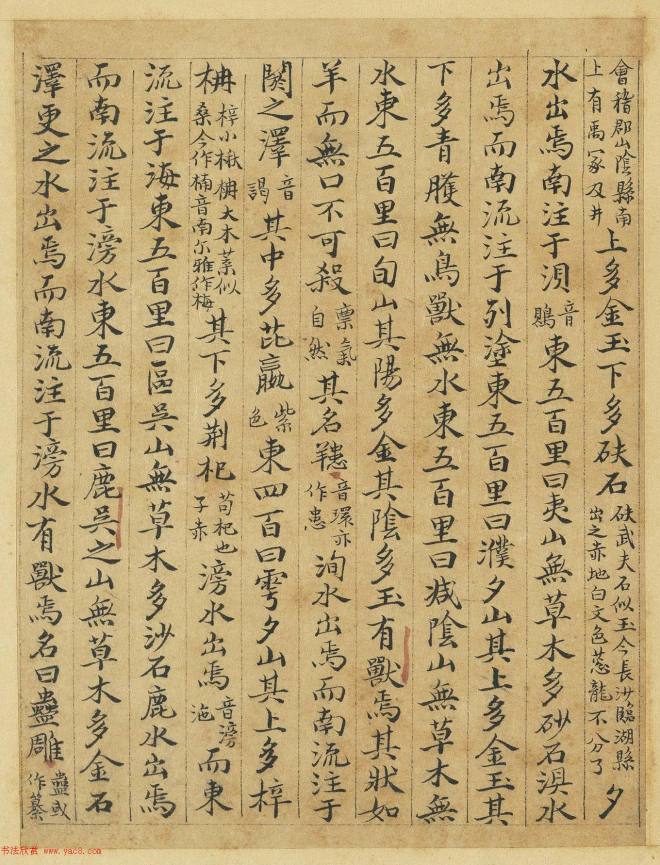 會稽郡山陰縣南上有禹冢及井上多金玉下多砆石砆武夫石似玉今長沙臨湖縣出之赤地白文色蔥龍不分了夕
水出焉南注于湨音鶪東五百里曰夷山無草木多砂石湨水
出焉而南流注于列塗東五百里曰濮夕山其上多金玉其
下多青雘無鳥獸無水東五百里曰减陰山無草木無
水東五百里曰旬山其陽多金其陰多玉有獸焉其狀如
羊而無口不可殺稟氣自然其名䍺音環亦作患洵水出焉而南流注于
閼之澤音謁其中多芘蠃紫色東四百曰雩夕山其上多梓
柟梓小楸柟大木葉似桑今作楠音南尔雅作梅其下多荆杞苟杞也子赤滂水出焉音滂沲而東
流注于海東五百里曰區吳山無草木多沙石鹿水出焉
而南流注于滂水東五百里曰鹿吳之山無草木多金石
澤更之水出焉而南流注于滂水有獸焉名曰蠱雕蠱或作纂
书法欣赏 www.yac8.com